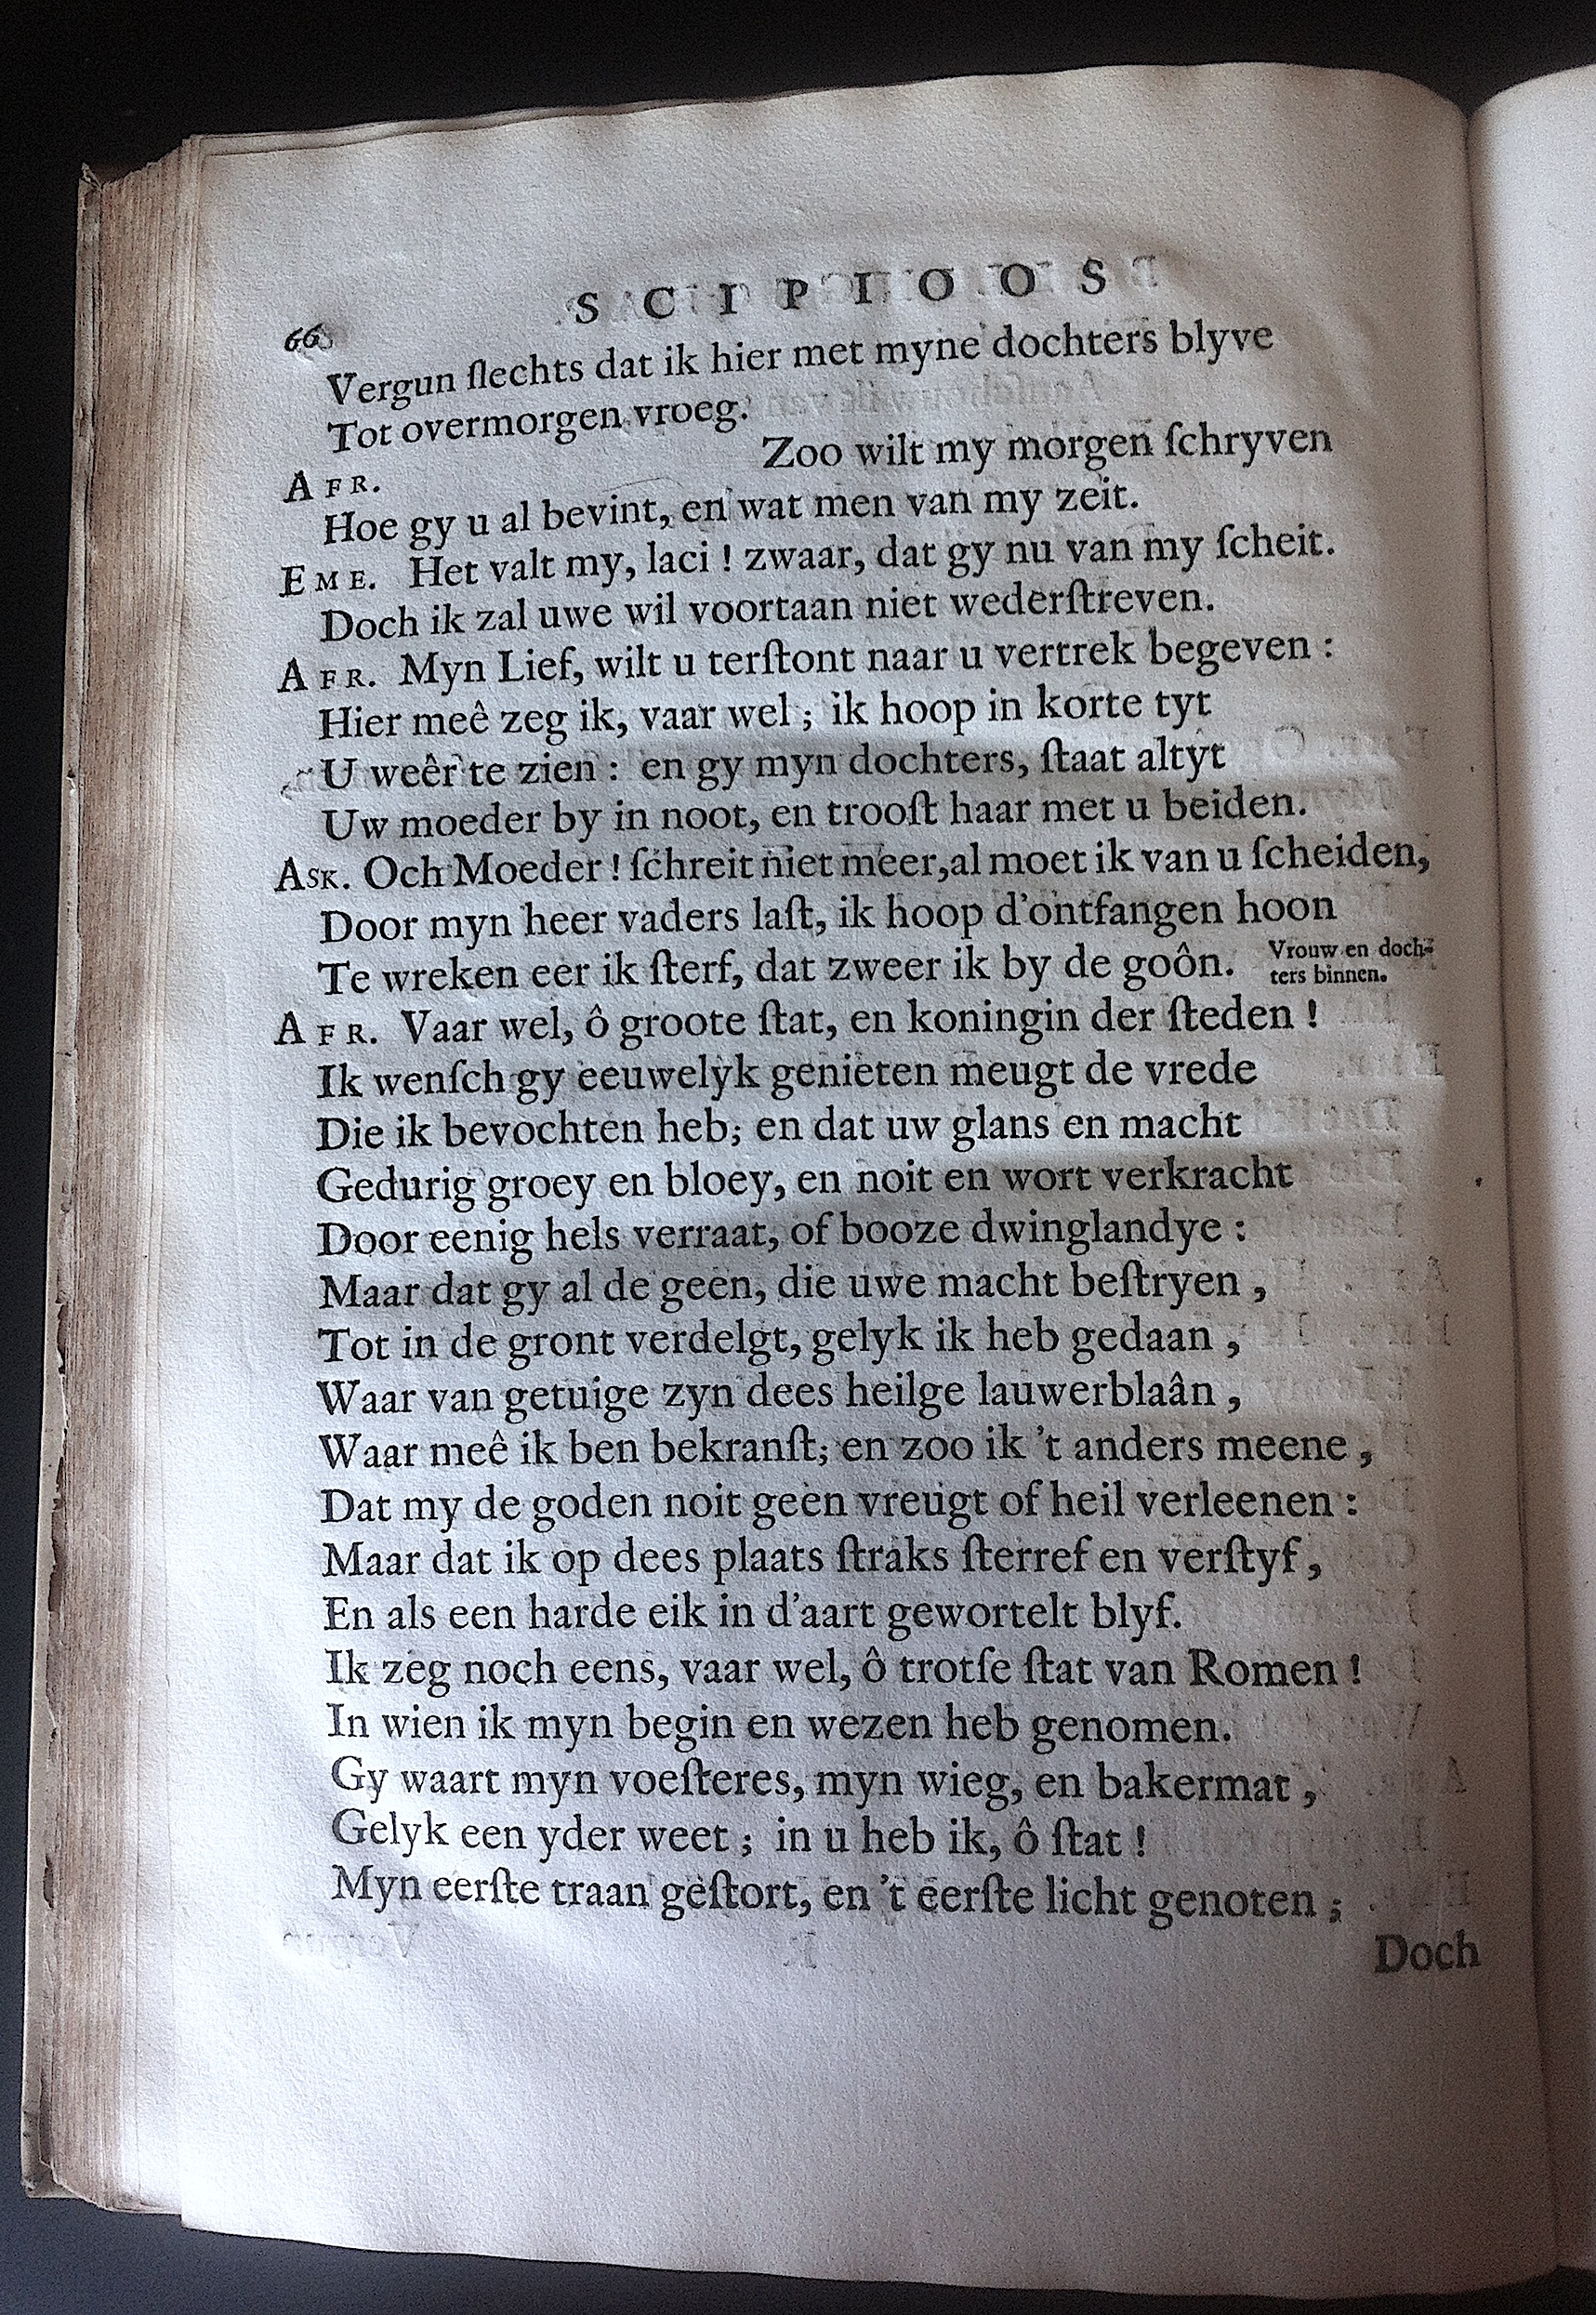 66 S C I P I O O S
Vergun ſlechts dat ik hier met myne dochters blyve
Tot overmorgen vroeg.
AFR. Zoo wilt my morgen ſchryven
Hoe gy u al bevint, en wat men van my zeit.
EME. Het valt my, laci! zwaar, dat gy nu van my ſcheit.
Doch ik zal uwe wil voortaan niet wederſtreven.
AFR. Myn Lief, wilt u terſtont naar u vertrek begeven:
Hier meê zeg ik, vaar wel; ik hoop in korte tyt
U weêr te zien: en gy myn dochters, ſtaat altyt
Uw moeder by in noot, en trooſt haar met u beiden.
ASK. Och Moeder! ſchreit niet meer, al moet ik van u ſcheiden,
Door myn heer vaders laſt, ik hoop d'ontfangen hoon
Te wreken eer ik ſterf, dat zweer ik by de goôn. Vrouw en doch-
ters binnen.
AFR. Vaar wel, ô groote ſtat, en koningin der ſteden!
Ik wenſch gy eeuwelyk genieten meugt de vrede
Die ik bevochten heb; en dat uw glans en macht
Gedurig groey en bloey, en noit en wort verkracht
Door eenig hels verraat, of booze dwinglandye:
Maar dat gy al de geen, die uwe macht beſtryen,
Tot in de gront verdelgt, gelyk ik heb gedaan,
Waar van getuige zyn dees heilge lauwerblaân,
Waar meê ik ben bekranſt; en zoo ik 't anders meene,
Dat my de goden noit geen vreugt of heil verleenen:
Maar dat ik op dees plaats ſtraks ſterref en verſtyf,
En als een harde eik in d'aart gewortelt blyf.
Ik zeg noch eens, vaar wel, ô trotſe ſtat van Romen!
In wien ik myn begin en wezen heb genomen.
Gy waart myn voeſteres, myn wieg, en bakermat,
Gelyk een yder weet; in u heb ik, ô ſtat!
Myn eerſte traan geſtort, en 't eerſte licht genoten;
Doch